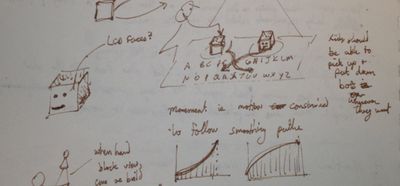 LCD Faces?
A B C D E F G H I J K L M
N O P Q R S T U V W X Y Z
kids should
be able to
pick up +
put down
bots
wherever
they want
movement is motion constrained
to follow smoothing paths
when hand
blocks view,
can we build